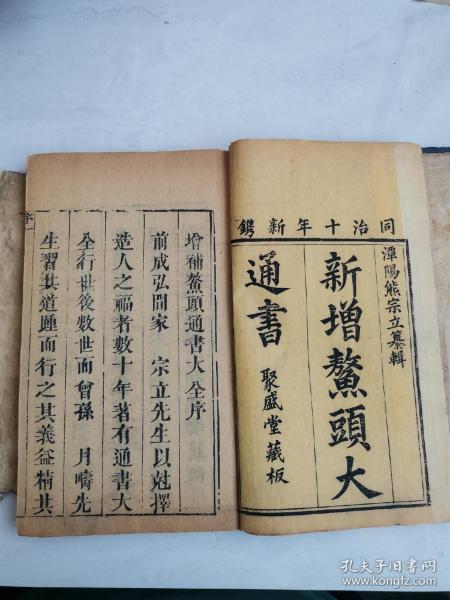 同治十年新鐫
潭陽熊宗立纂輯
新增鰲頭大
通書
聚盛堂藏板
增補鰲頭通書大全序
前成弘間家 宗立先生以尅擇
造人之福者數十年著有通書大
全行世後數世而曾孫 月疇先
生習其道踵而行之其義益精其
序
孔夫子旧书网
www.kongfz.com